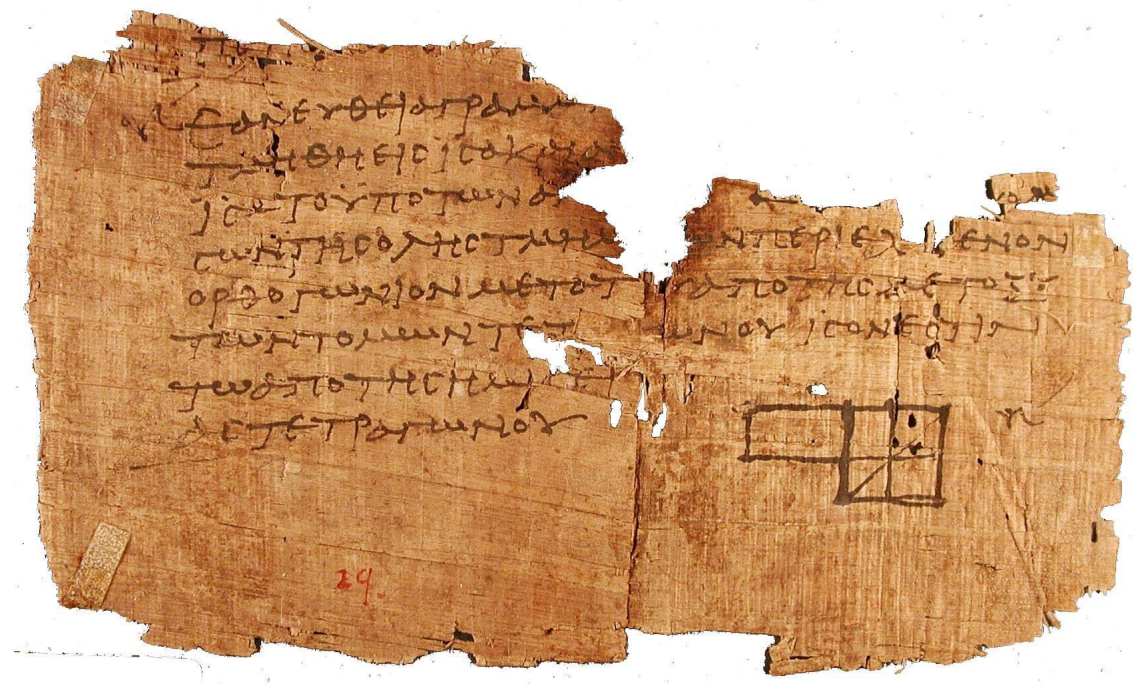 ΕΑΝΕΥΘΕΙΑΓΡΑΜ
ΤΜΗΘΗΕΙϹΙϹΑΚΑΙΑΝ
ΙϹΑΤΟΫΠΟΤΩΝΑ
ϹΩΝΤΗϹΟΛΗϹΤΜΗΜ ΩΝΠΕΡΙΕΧ ΕΝΟΝ
ΟΡΘΟΓΩΝΙΟΝΜΕΤΑΤ ΑΠΟΤΗϹΜΕΤΟΞΥ
ΤΩΝΤΟΜΩΝΤΕΤ ΓΩΝΟΥΙϹΟΝΕϹΤΙΝ
ΤΩΑΠΟΤΗϹΗΜΙϹΕΙ
ΑϹΤΕΤΡΑΓΩΝΟΥ
29